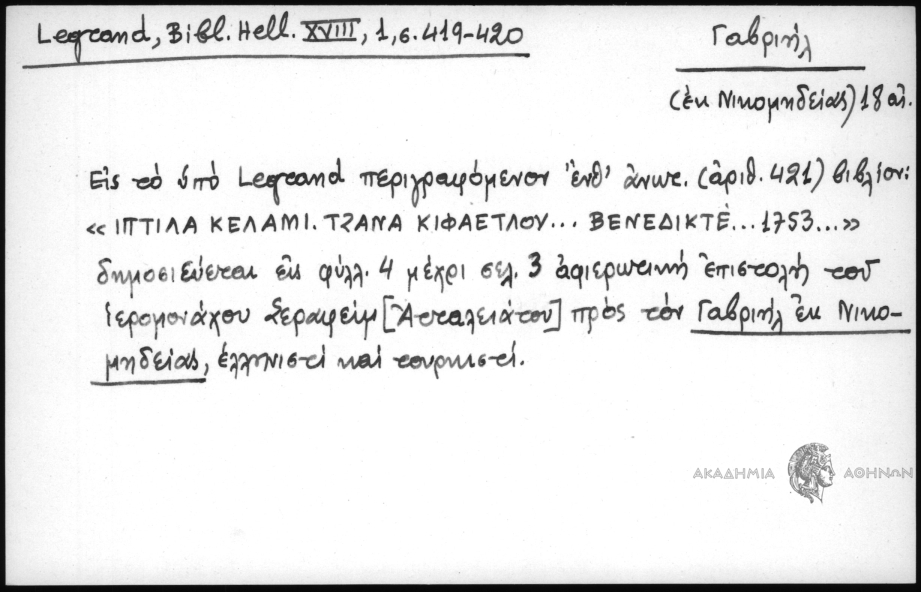 Legrand, Bibl. Hell. XVIII, 1, σ. 419-420
Γαβριήλ
(ἐκ Νικομηδείας) 18 αἰ.
Εἰς τὸ ὑπὸ Legrand περιγραφόμενον ἔνθ' ἀνωτ. (ἀριθ. 421) βιβλίον:
« ΙΠΤΙΛΑ ΚΕΛΑΜΙ. ΤΖΑΝΑ ΚΙΦΑΕΤΛΟΥ... ΒΕΝΕΔΙΚΤῈ... 1753...»
δημοσιεύεται εἰς φύλλ. 4 μέχρι σελ. 3 ἀφιερωτικὴ ἐπιστολὴ τοῦ
ἱερομονάχου Σεραφεὶμ [Ἀτταλειάτου] πρὸς τὸν Γαβριὴλ ἐκ Νικο-
μηδείας, ἑλληνιστὶ καὶ τουρκιστί.
ΑΚΑΔΗΜΙΑ ΑΘΗΝΩΝ